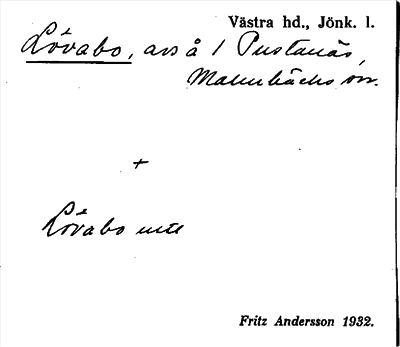 Västra hd., Jönk. l.
Lövabo, avs å 1 Prustanäs,
Malmbäcks sn.
+
Lövabo
Fritz Andersson 1932.